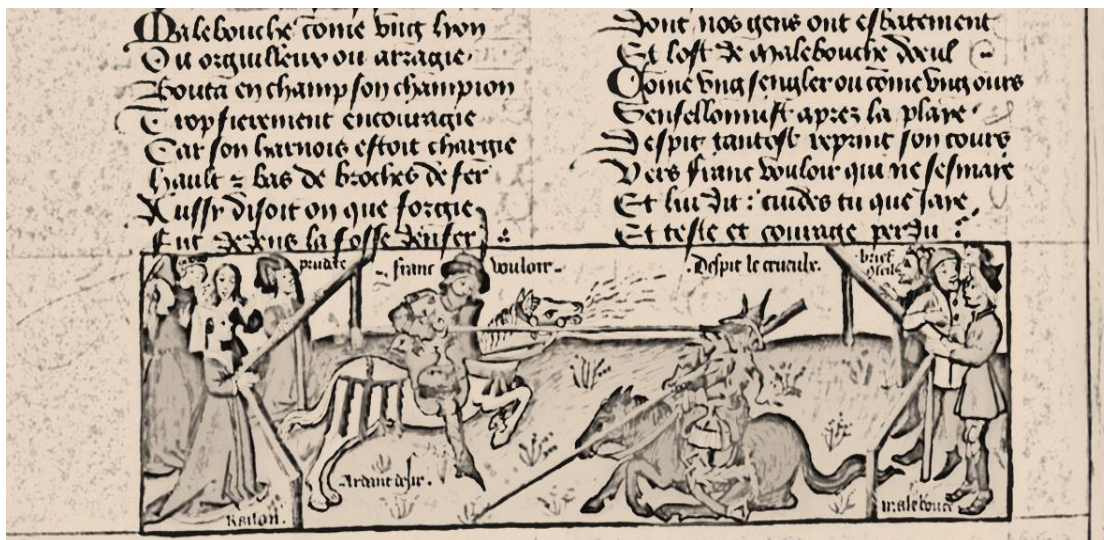 Malebouche cōme ung lyon
Ou orguilleux ou arragie
Bouta en champ son champion
Trop fierement encouragie
Car son harnois estoit chargie
Hault ⁊ bas de broches de fer
Aussy disoit on que forgie
Fut dedens la fosse denfer
Dont nos gens ont esbatement
Et lost de malebouche doeul
Cōme ung sengler ou cōme ung ours
Senfellonnist aprez la playe
Despit tantost reprint son cours
Vers franc vouloir qui ne sesmaye
Et lui dit : cuides tu que jaye
Et teste et courage perdu
franc vouloir
Despit le crueulx
brief
Ardant desir
Raison
malebouce